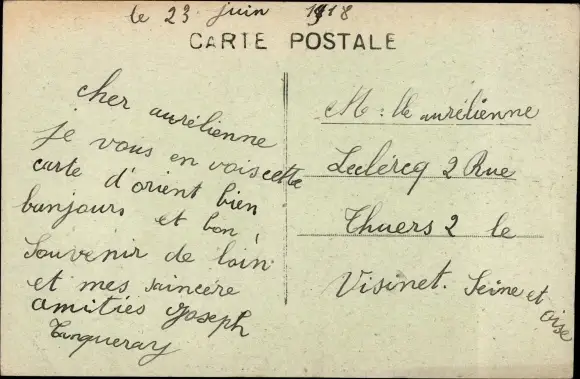 le 23 juin 1918
CARTE POSTALE
cher aurélienne
je vous en vois cette
carte d'orient bien
bonjours et bon
souvenir de loin
et mes saincére
amitiés Joseph
Tanqueray
M: lle aurélienne
Leclércq 2 Rue
Thuers 2 le
Visinet. Seine et
oise